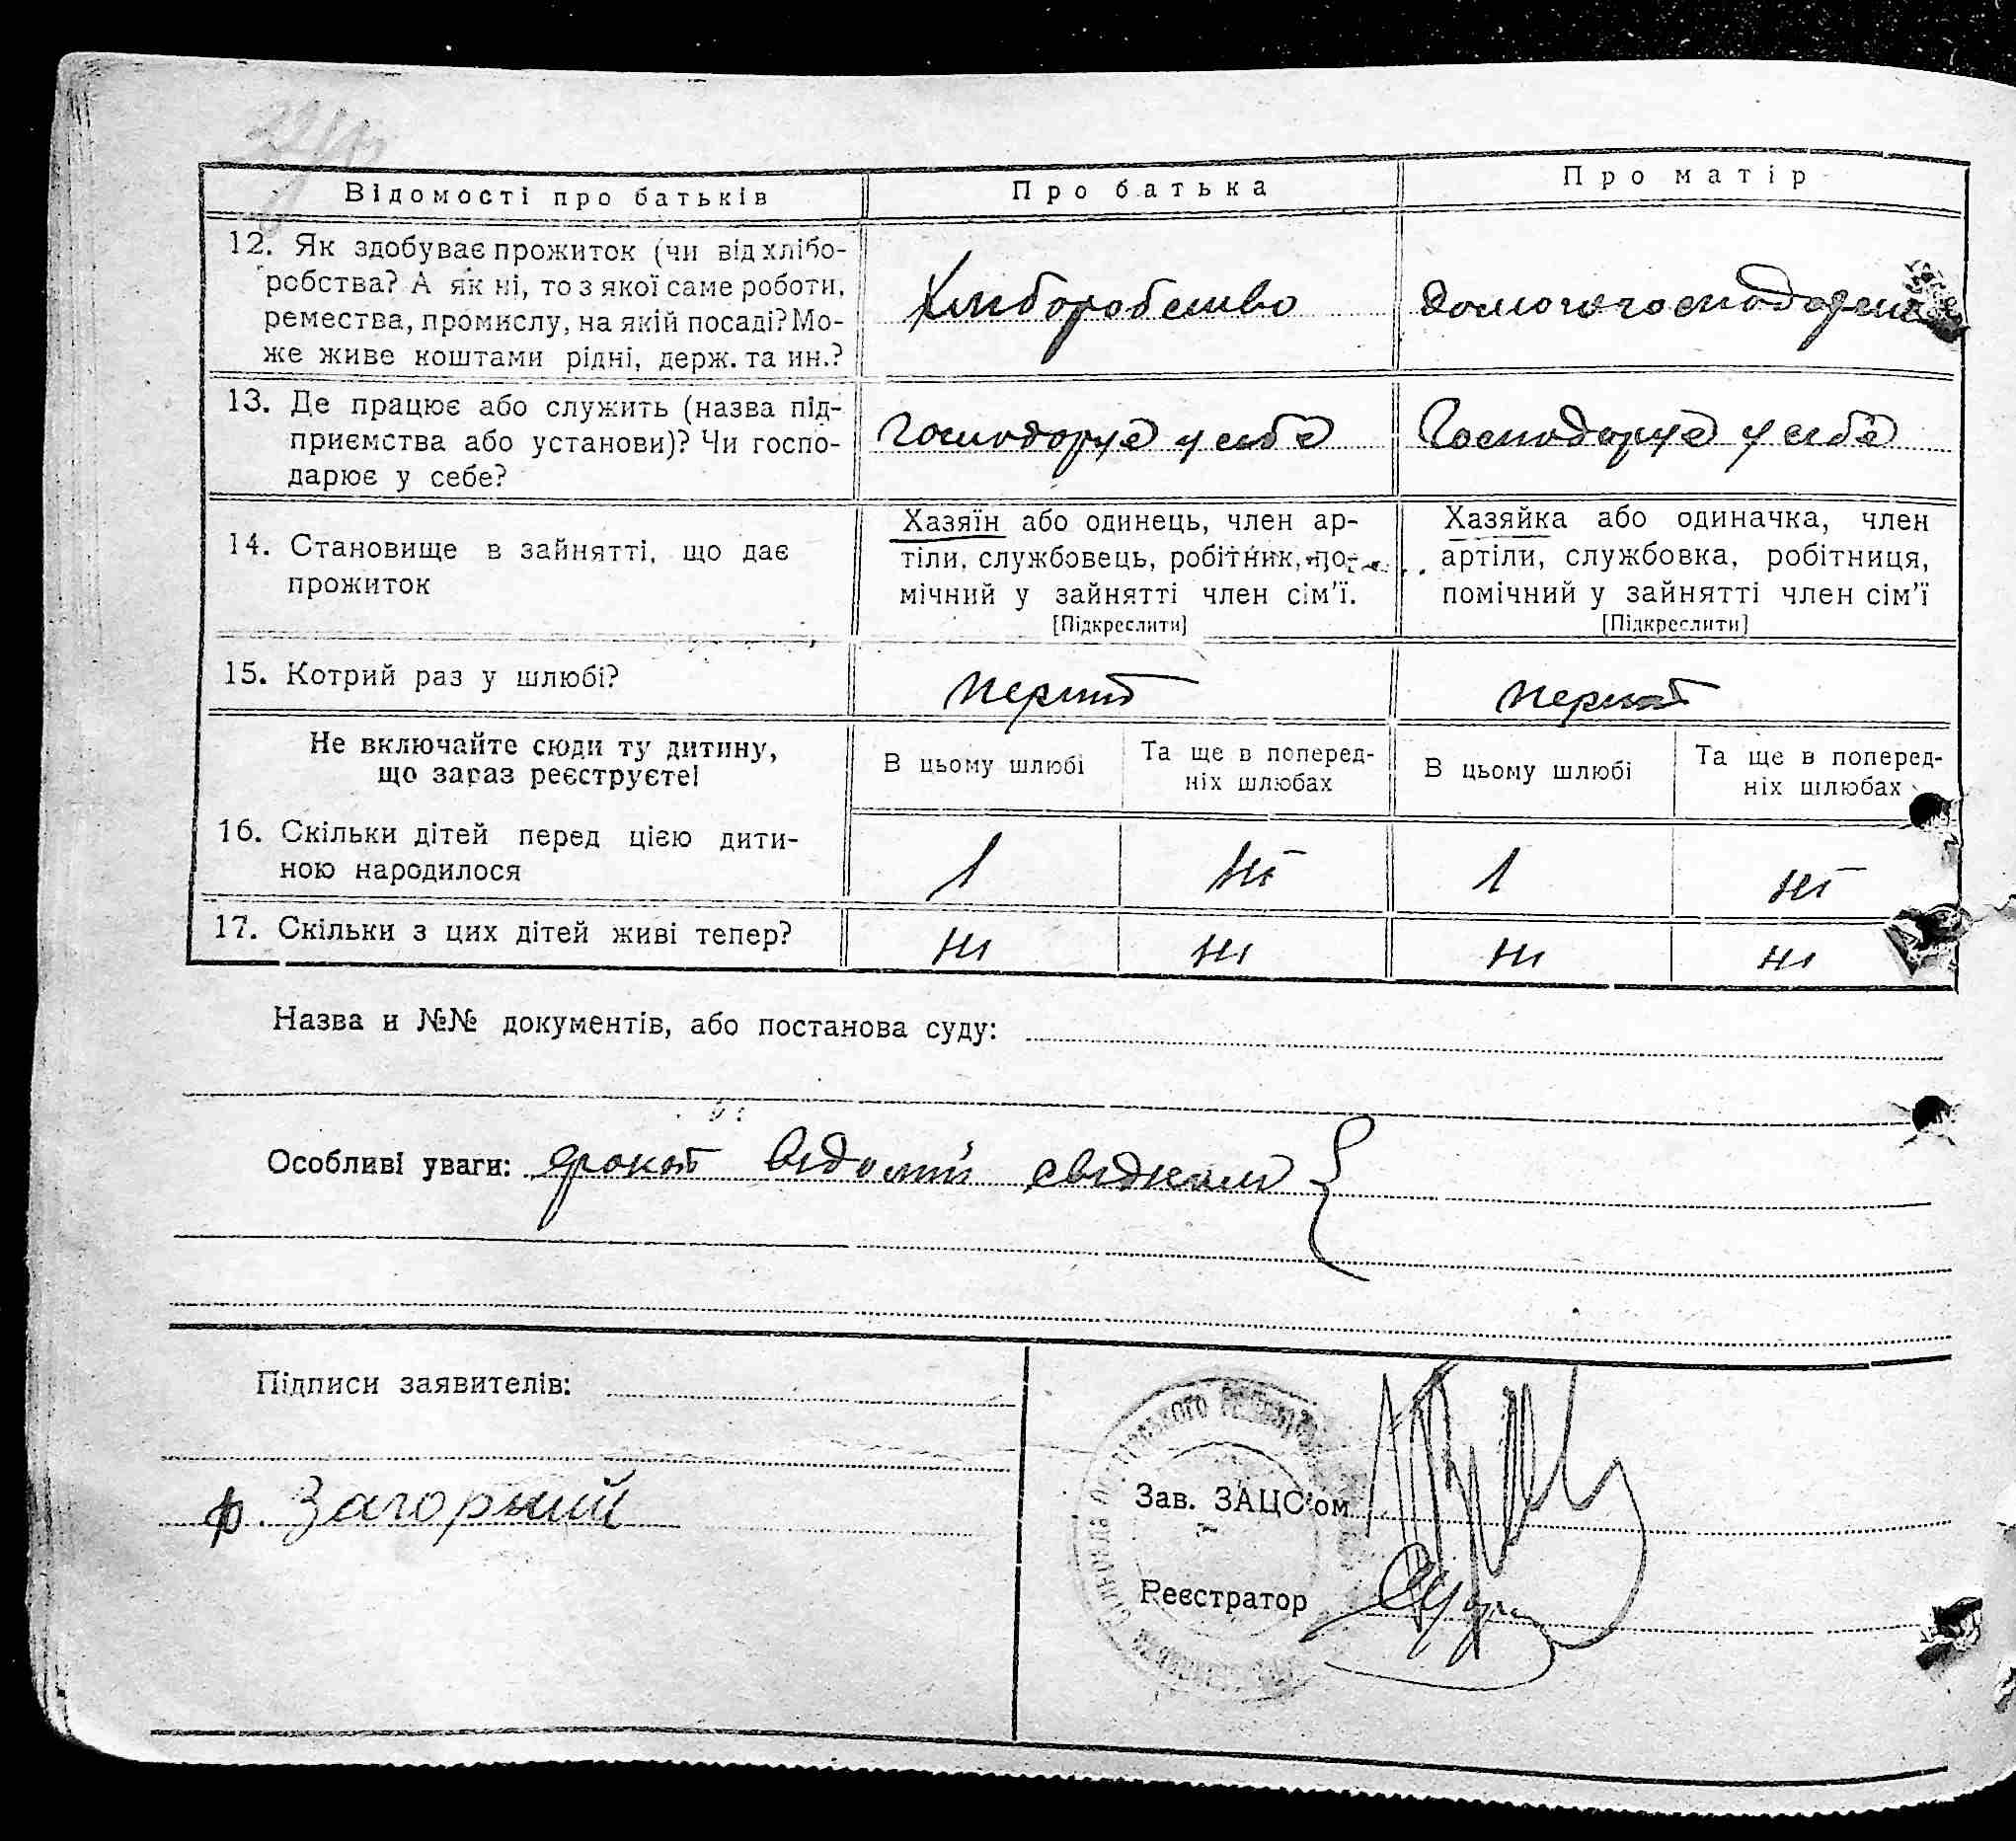 Відомості про батьків
Про батька
Про матір
12. Як здобуває прожиток (чи від хлібо-
робства? А як ні, то з якої саме роботи,
ремества, промислу, на якій посаді? Мо-
же живе коштами рідні, держ. та ин.?
Хліборобство
13. Де працює або служить (назва під-
приємства або установи)? Чи госпо-
дарює у себе?
Господарує у себе
Господарує у себе
14. Становище в зайнятті, що дає
прожиток
Хазяїн або одинець, член ар-
тіли, службовець, робітник, по-
мічний у зайнятті член сім'ї.
[Підкреслити]
Хазяйка або одиначка, член
артіли, службовка, робітниця,
помічний у зайнятті член сім'ї
[Підкреслити]
15. Котрий раз у шлюбі?
перший
Не включайте сюди ту дитину,
що зараз реєструєте!
В цьому шлюбі
Та ще в поперед-
ніх шлюбах
В цьому шлюбі
Та ще в поперед-
ніх шлюбах
16. Скільки дітей перед цією дити-
ною народилося
1
ні
1
ні
17. Скільки з цих дітей живі тепер?
ні
ні
ні
ні
Назва и №№ документів, або постанова суду:
Особливі уваги:
відомий свідкам
Підписи заявителів:
Ф. Загорний
Зав. ЗАЦС'ом
Реєстратор